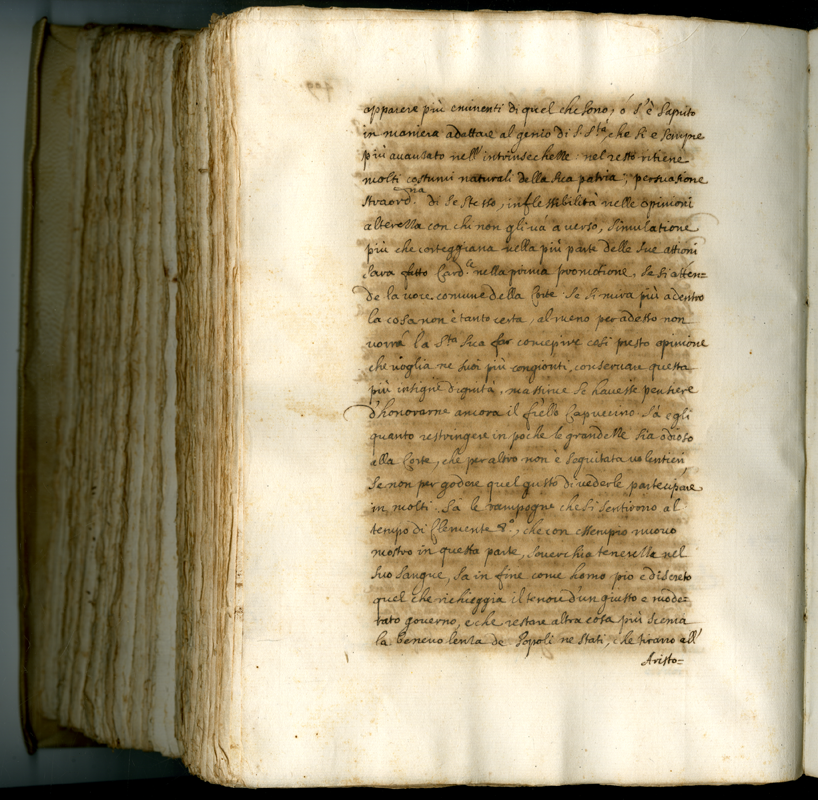 apparere più eminenti di quel che sono, ó s'è saputo
in maniera adattare al genio di S. Sta, che si è sempre
più avanzato nell'intrinsechezze: nel resto ritiene
molti costumi naturali della sua patria; persuasione
straord.na di se stesso, inflessibilità nelle opinioni
alterezza con chi non gli và a verso, simulatione
più che corteggiana nella più parte delle sue attioni
Sara fatto Card.le nella prima promotione, se si atten=
de la voce comune della Corte. Se si mira più adentro
la cosa non è tanto certa, al meno per adesso non
vorrà la Sta Sua far concepire così presto opinione
che voglia ne suoi più congionti, conservare questa
più insigne dignità, massime se havesse pensiere
d'honorarne ancora il frello Capuccino. Sà egli
quanto restringere in poche le grandezze sia odioso
alla Corte, che per altro non è seguitata volentieri,
se non per godere quel gusto di vederle participare
in molti. Sà le rampogne che si sentirono al
tempo di Clemente 8.º, che con essempio nuovo
mostrò in questa parte, soverchia tenerezza nel
suo sangue, sa in fine come homo pio e discreto
quel che richieggia il tenore d'un giusto e mode=
rato governo, e che restare altra cosa più scema
la benevolenza de Popoli ne stati, che tirarsi all'
Aristo=